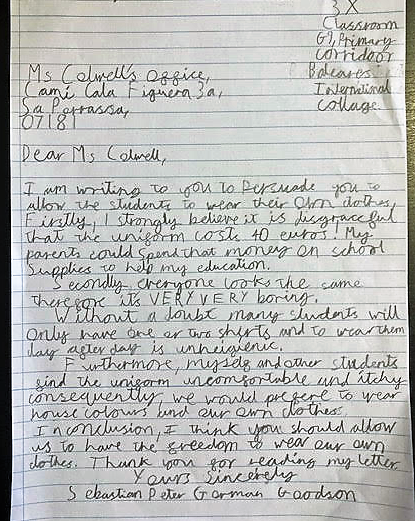 3X
Classroom
G1, Primary
corridoor
Baleares
International
collage
Ms Colwell's office,
Camí Cala Figuera 3a,
Sa Porrassa,
07181
Dear Ms Colwell,
I am writing to you to persuade you to
allow the students to wear their own clothes.
Firstly, I strongly believe it is disgraceful
that the uniform costs 40 euros! My
parents could spend that money on school
supplies to help my education.
Secondly everyone looks the same
therefore its VERY VERY boring.
Without a doubt many students will
only have one or two shirts and to wear them
day after day is unheigienic.
Furthermore, myself and other students
find the uniform uncomfortable and itchy
consequently, we would prefere to wear
house colours and our own clothes.
In conclusion, I think you should allow
us to have the freedom to wear our own
clothes. Thank you for reading my letter
Yours Sincerely
Sebastian Peter German Goodson